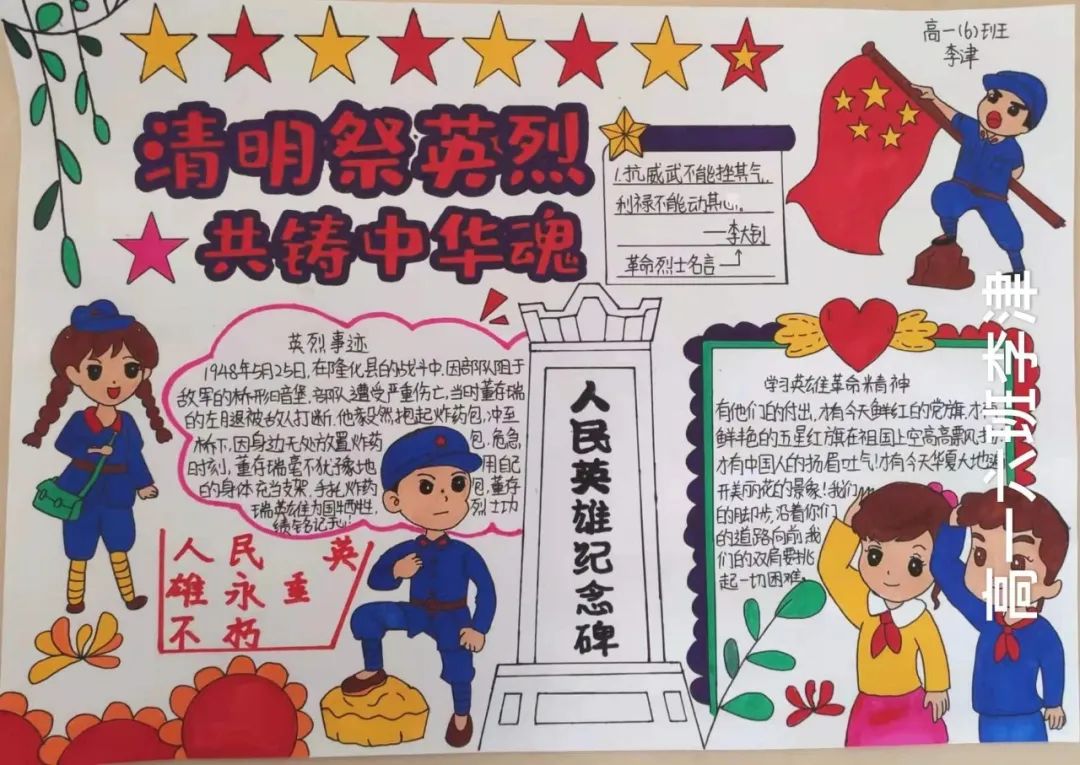 高一(6)班
李津
清明祭英烈
共铸中华魂
1.抗威武不能挫其气,
利禄不能动其心。
—李大钊
革命烈士名言
英烈事迹
1948年5月25日,在隆化县的战斗中,因部队阻于
敌军的桥形暗堡,部队遭受严重伤亡,当时董存瑞
的左腿被敌人打断,他毅然抱起炸药包,冲至
桥下,因身边无处放置炸药包,危急
时刻,董存瑞毫不犹豫地用自己
的身体充当支架,手扎炸药包,董存
瑞英雄为国牺牲,烈士功
绩铭记于心!
人民英
雄永垂
不朽
人民英雄纪念碑
学习英雄革命精神
有他们的付出,才有今天鲜红的党旗,才
鲜艳的五星红旗在祖国上空高高飘风
才有中国人的扬眉吐气!才有今天华夏大地
开美丽花的景象!我们
的脚步,沿着你们
的道路向前,我
们的双肩要挑
起一切困难。
高一六班李津